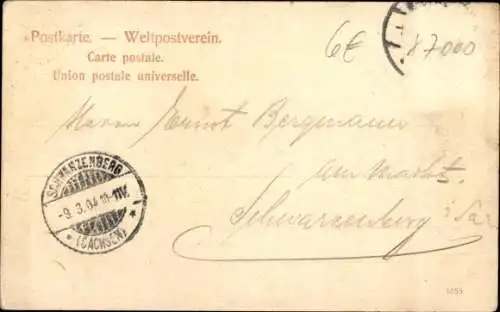 Postkarte. — Weltpostverein.
Carte postale.
Union postale universelle.
6€
87000
Herrn Ernst Bergmann
am Markt.
Schwarzenberg i Sa.
SCHWARZENBERG
- 9. 3. 04. 10-11V.
* (SACHSEN) *